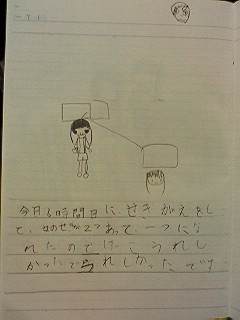 今日6時間目にせきがえをし
て、女のせきが2つあって、一つにな
れたのでけっこううれし
かったでうれしかったです